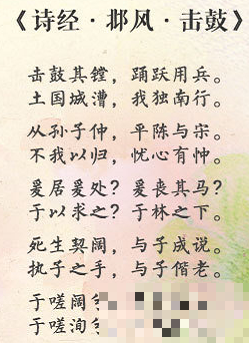 《诗经·邶风·击鼓》
击鼓其镗，踊跃用兵。
土国城漕，我独南行。
从孙子仲，平陈与宋。
不我以归，忧心有忡。
爰居爰处？爰丧其马？
于以求之？于林之下。
死生契阔，与子成说。
执子之手，与子偕老。
于嗟阔
于嗟洵